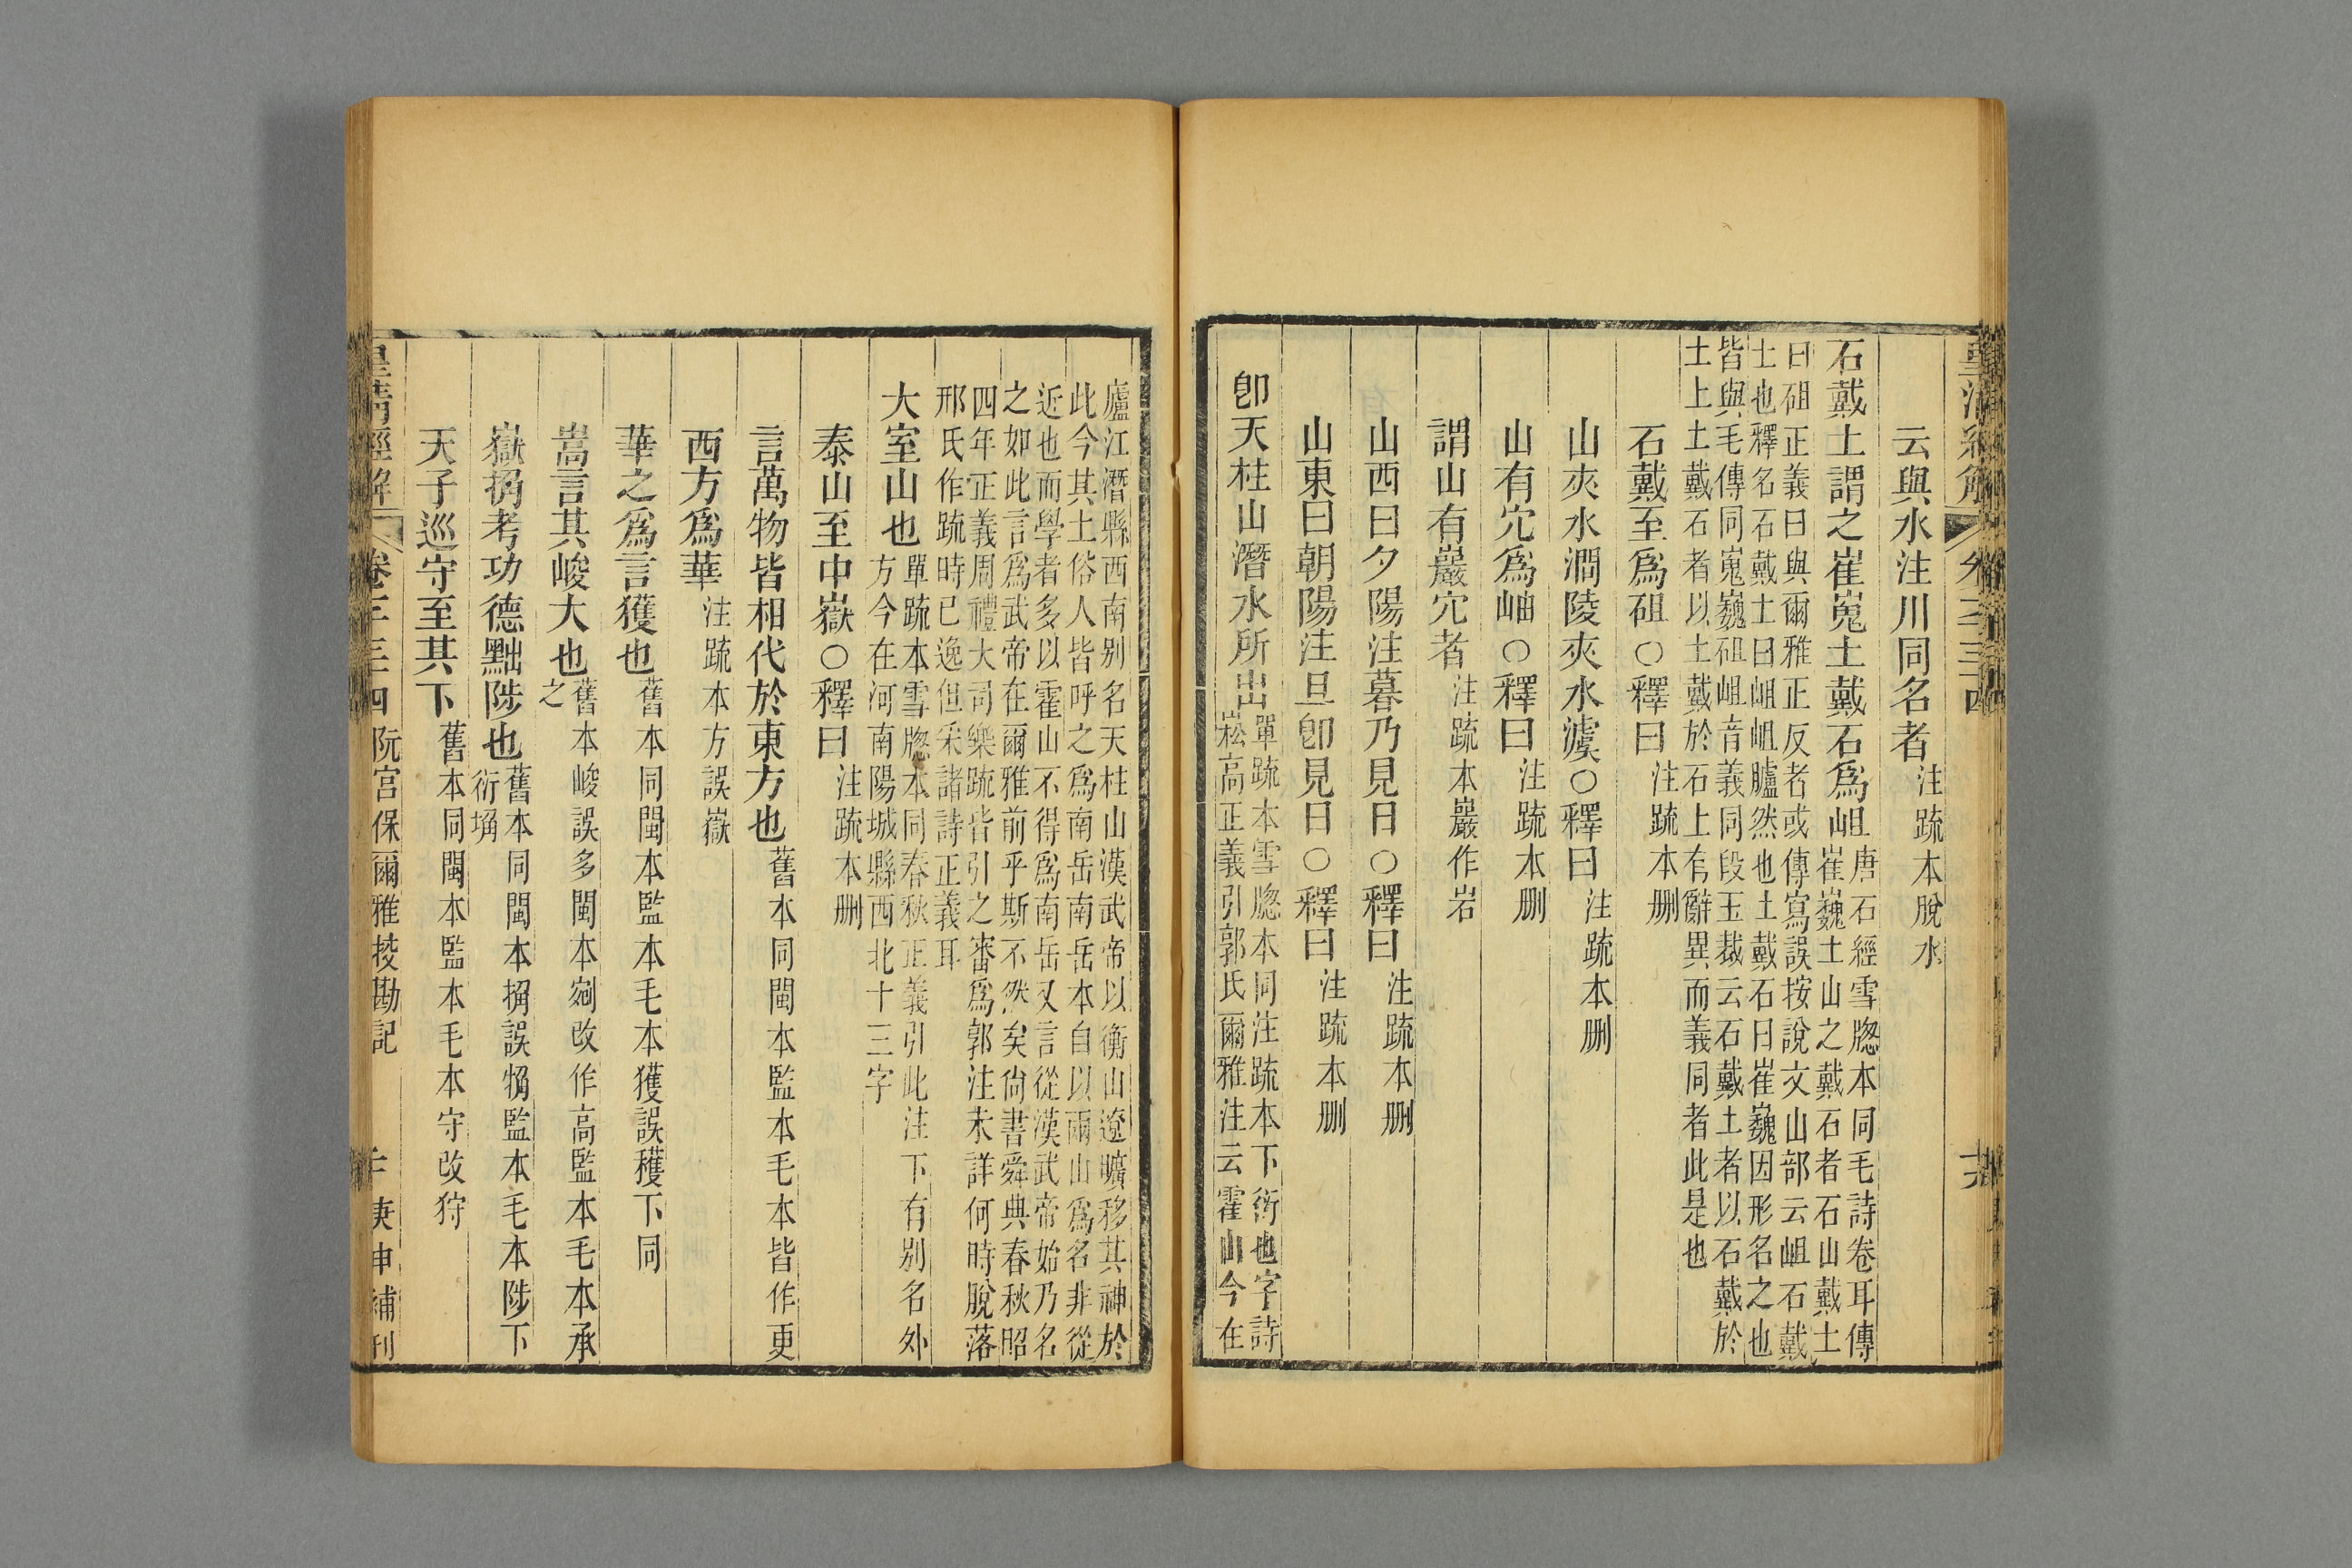 云與水注川同名者注疏本脫水
石戴土謂之崔嵬土戴石爲岨唐石經雪牕本同毛詩卷耳傳
崔巍土山之戴石者石山戴土
曰砠正義曰與爾雅正反者或傳寫誤按說文山部云岨石戴
土也釋名石戴土曰岨岨臚然也土戴石曰崔巍因形名之也
皆與毛傳同嵬巍砠岨音義同段玉裁云石戴土者以石戴於
土上土戴石者以土戴於石上有辭異而義同者此是也
石戴至爲砠○釋曰注疏本刪
山夾水澗陵夾水澞○釋曰注疏本刪
山有穴爲岫○釋曰注疏本刪
謂山有巖穴者注疏本巖作岩
山西曰夕陽注暮乃見日○釋曰注疏本刪
山東曰朝陽注旦卽見日○釋曰注疏本刪
卽天柱山潛水所出單疏本雪牕本同注疏本下衍也字詩
崧高正義引郭氏爾雅注云霍山今在
廬江潛縣西南别名天柱山漢武帝以衡山遼曠移其神於
此今其土俗人皆呼之爲南岳南岳本自以兩山爲名非從
近也而學者多以霍山不得爲南岳又言從漢武帝始乃名
之如此言爲武帝在爾雅前乎斯不然矣尙書舜典春秋昭
四年正義周禮大司樂疏皆引之審爲郭注未詳何時脫落
邢氏作疏時已逸但采諸詩正義耳
大室山也單疏本雪牕本同春秋正義引此注下有别名外
方今在河南陽城縣西北十三字
泰山至中嶽○釋曰注疏本刪
言萬物皆相代於東方也舊本同閩本監本毛本皆作更
西方爲華注疏本方誤嶽
華之爲言獲也舊本同閩本監本毛本獲誤穫下同
嵩言其峻大也舊本峻誤多閩本剜改作高監本毛本承
之
嶽捔考功德黜陟也舊本同閩本捔誤觕監本毛本陟下
衍埆
天子巡守至其下舊本同閩本監本毛本守改狩
皇清經解 卷三十四 阮宮保爾雅挍勘記 庚申補刊